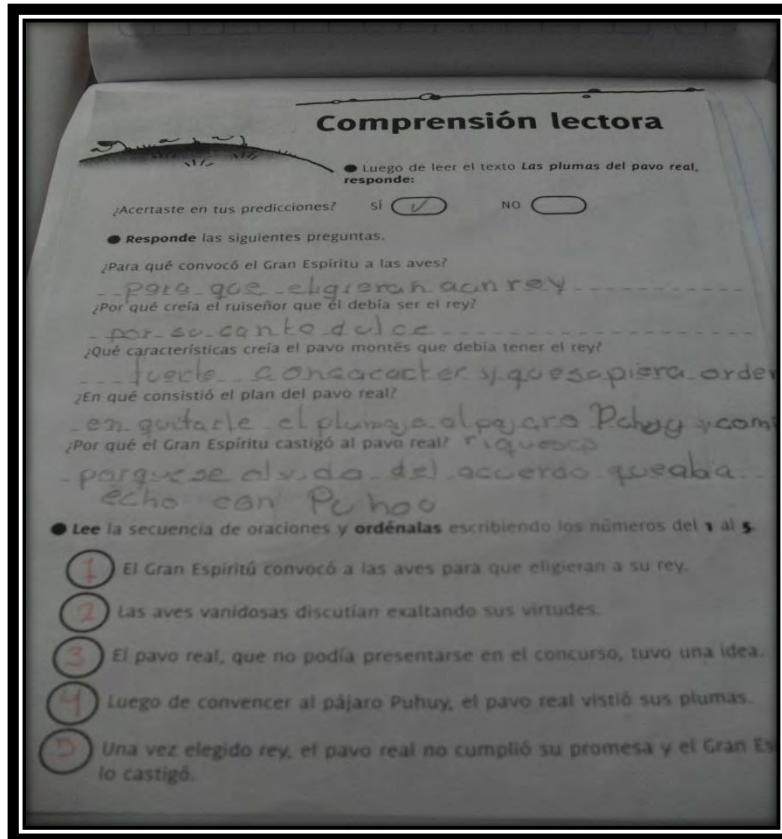 Comprensión lectora
● Luego de leer el texto Las plumas del pavo real,
responde:
¿Acertaste en tus predicciones? SÍ ✓ NO
● Responde las siguientes preguntas.
¿Para qué convocó el Gran Espíritu a las aves?
para que eligieran a un rey
¿Por qué creía el ruiseñor que él debía ser el rey?
por su canto dulce
¿Qué características creía el pavo montés que debía tener el rey?
fuerte y que sapiera orden
¿En qué consistió el plan del pavo real?
en quitarle el plumaje al pajaro y com
¿Por qué el Gran Espíritu castigó al pavo real?
porque se olvido del acuerdo que abia
echo con
● Lee la secuencia de oraciones y ordénalas escribiendo los números del 1 al 5.
1 El Gran Espíritú convocó a las aves para que eligieran a su rey.
2 Las aves vanidosas discutían exaltando sus virtudes.
3 El pavo real, que no podía presentarse en el concurso, tuvo una idea.
4 Luego de convencer al pájaro Puhuy, el pavo real vistió sus plumas.
5 Una vez elegido rey, el pavo real no cumplió su promesa y el Gran Es
lo castigó.